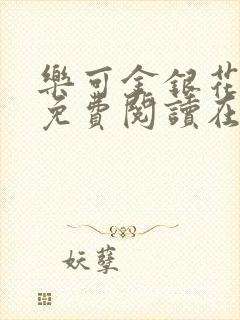 樂可金銀花
免費閱讀在
妖孽